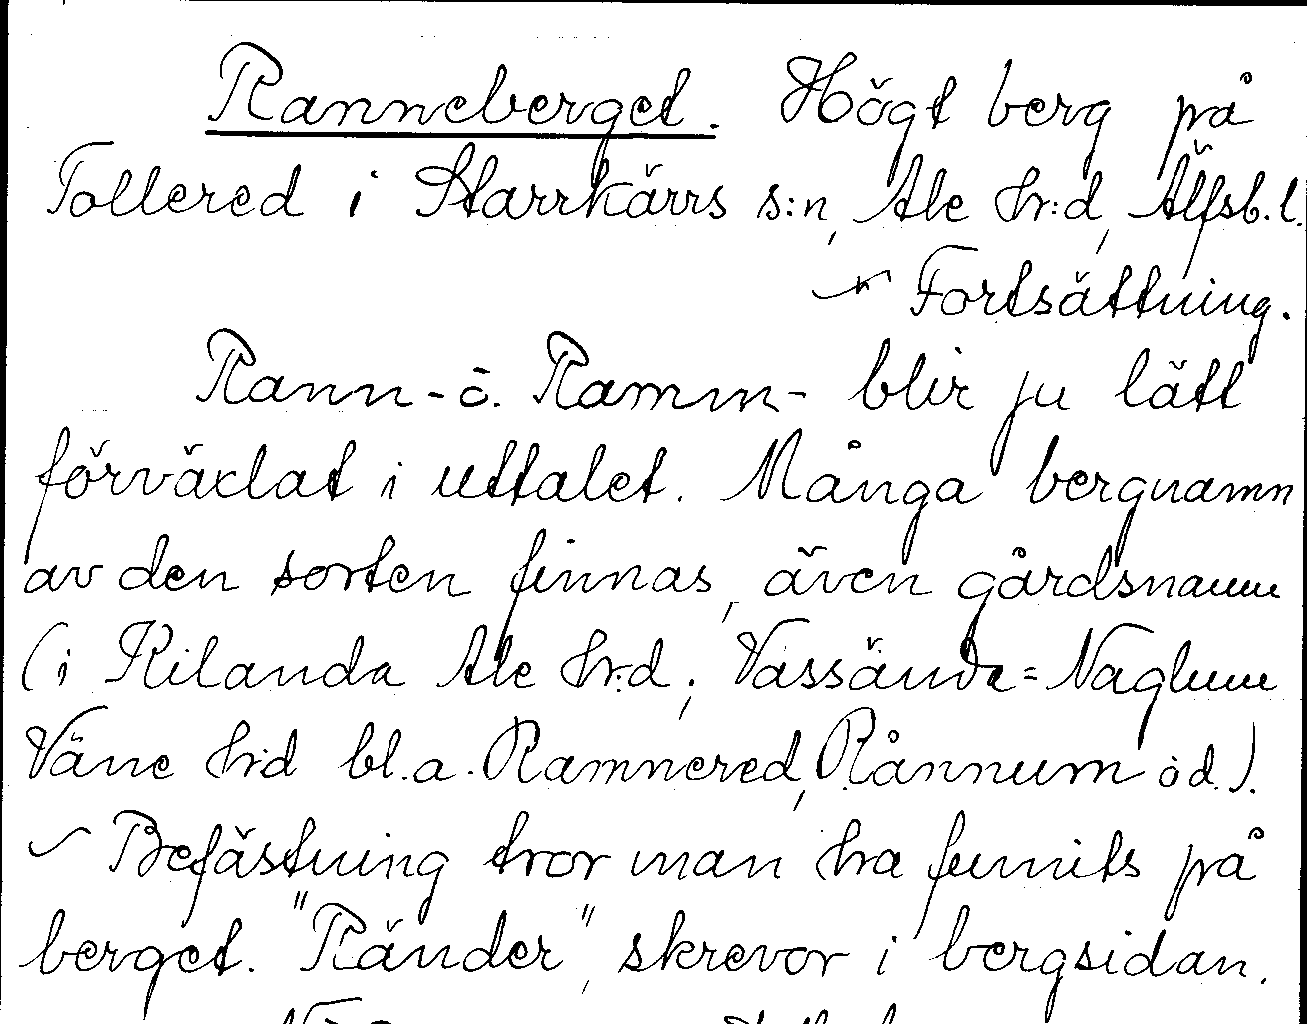 Ranneberget. Högt berg på
Tollered i Starrkärrs s:n, Ale hr:d, Älfsb. l.
Fortsättning.
Rann- o. Ramm- blir ju lätt
förväxlat i uttalet. Många bergnamn
av den sorten finnas, även gårdsnamn
(i Kilanda Ale hr:d, Vassända=Naglum
Väne hrd bl.a. Ramnered, Rånnum o d.).
Befästning tror man ha funnits på
berget. "Ränder", skrevor i bergsidan.